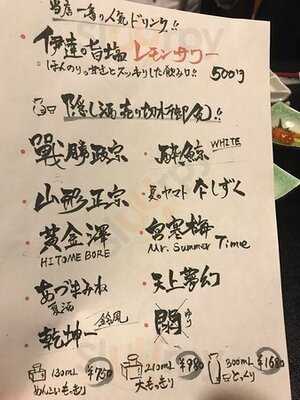 当店一番の人気ドリンク!!
伊達の旨塩レモンサワー
ほんのり甘さとスッキリした飲み口!! 500円
隠し酒売り切れ御免!!
戰勝政宗 酔鯨 WHITE
山形正宗 夏のヤマト なしずく
黄金澤 HITOMEBORE 宮寒梅 Mr. Summer Time
あづまみね 夏酒 天上夢幻
乾坤一 鈴風 閖 ゆり
130ml ¥750 210ml ¥980 300ml ¥1580
めんこいもっきり 大もっきり とっくり